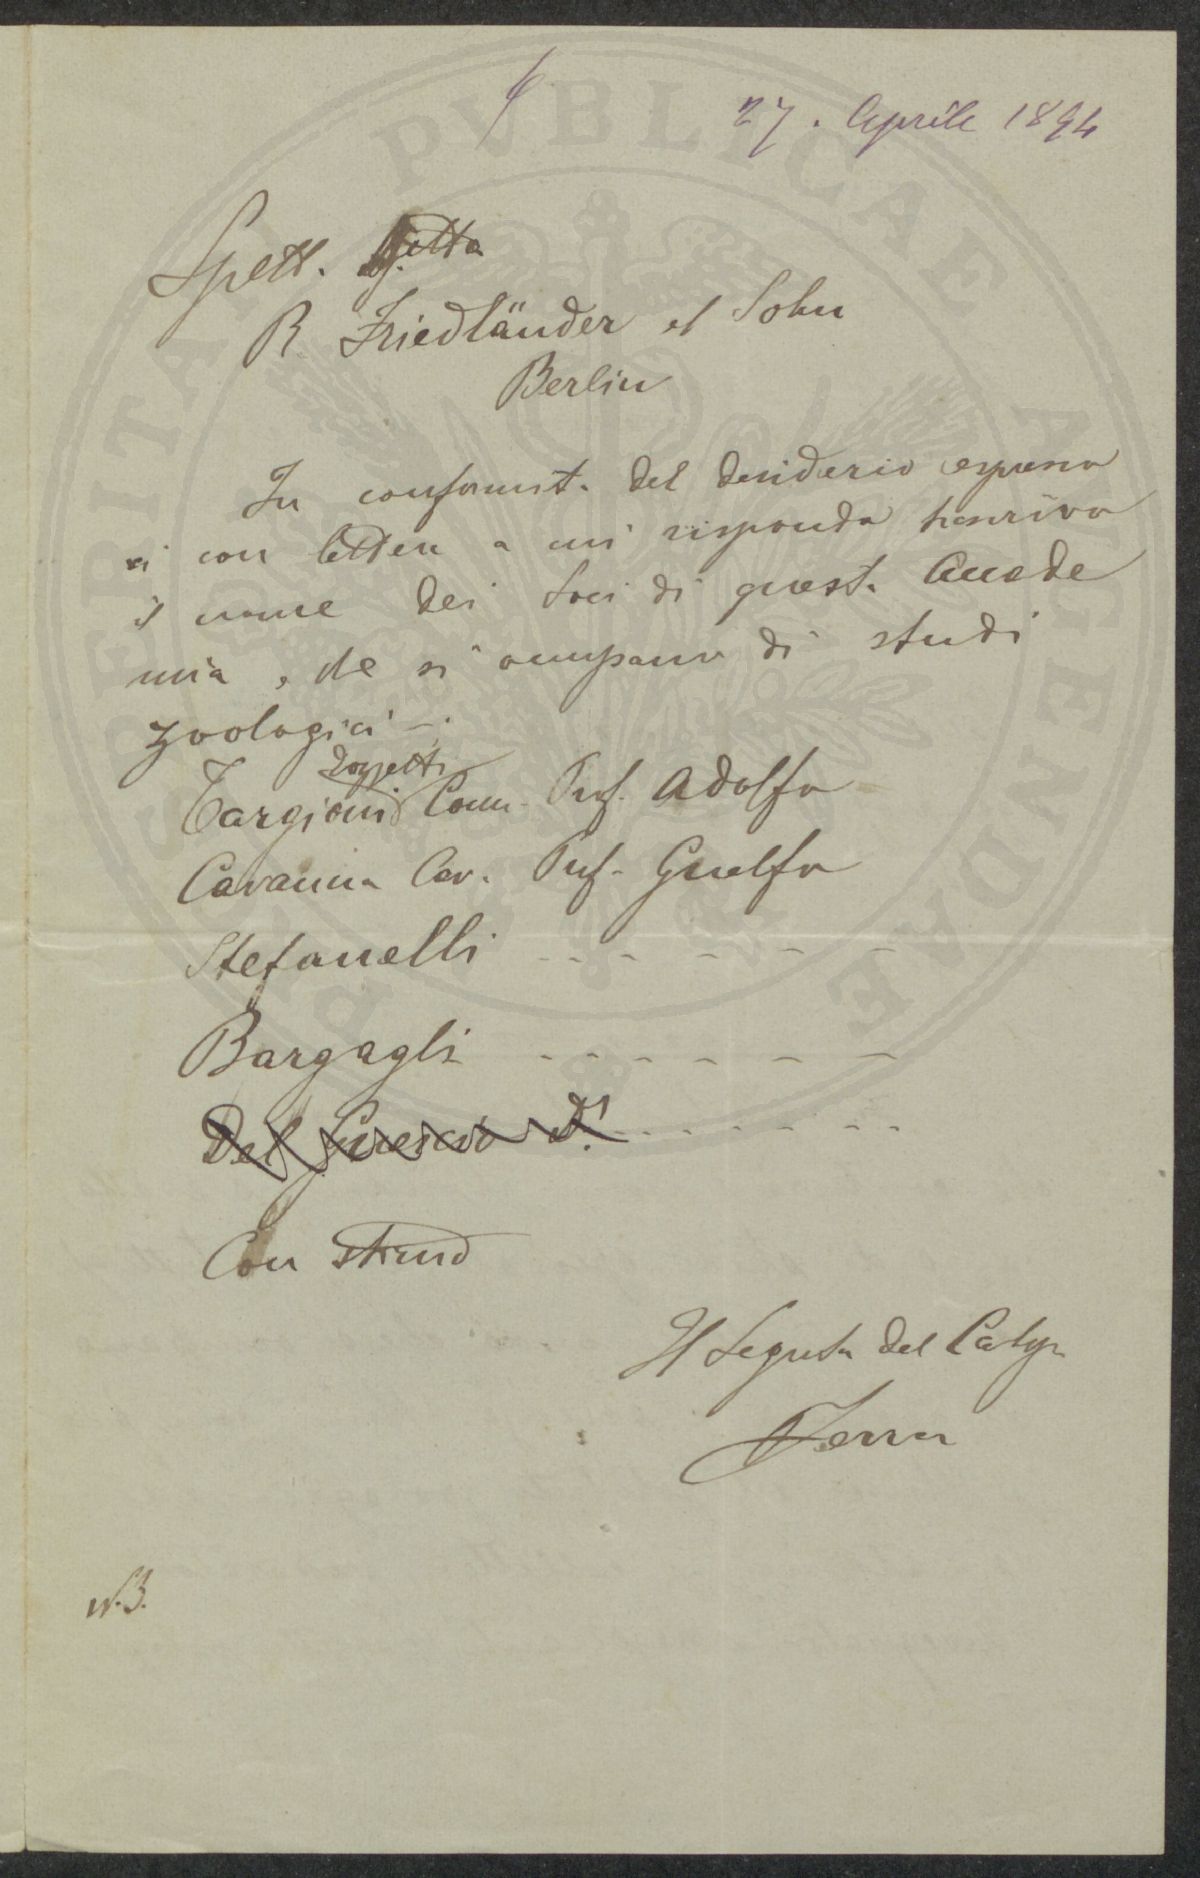 27. Aprile 1894
Spett. Ditta
R Friedländer et Sohn
Berlin
In conformità del desiderio espresso
vi con lettera a cui rispondo trascrivo
il nome dei Soci di questa Accade
mia, che si occupano di studi
zoologici —.
Tozzetti
Targioni Comm. Prof. Adolfo
Cavanna Cav. Prof. Guelfo
Stefanelli - - - - - -
Bargagli - - - - - -
Del Guercio Dr. - - - - - -
Con stima
Il Segret. del Carteg.
N.B.
PVBLICAE